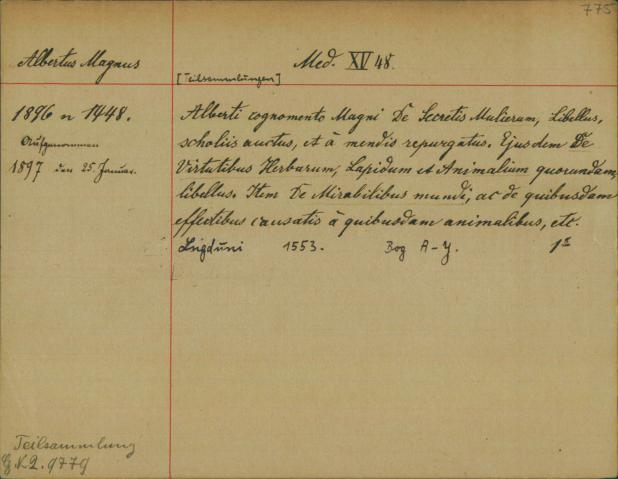 775
Albertus Magnus
Med. XIV 48.
[Teilsammlungen]
1896 n 1448.
Aufgenommen
1897 den 25. Januar.
Alberti cognomento Magni De Secretis Mulierum, Libellus,
scholiis auctus, et à mendis repurgatus. Ejusdem De
Virtutibus Herbarum, Lapidum et Animalium quorundam,
libellus. Item De Mirabilibus mundi, ac de quibusdam
effectibus causatis à quibusdam animalibus, etc.
Lugduni 1553. Bog A-Y.
Teilsammlung
N 2. 9779